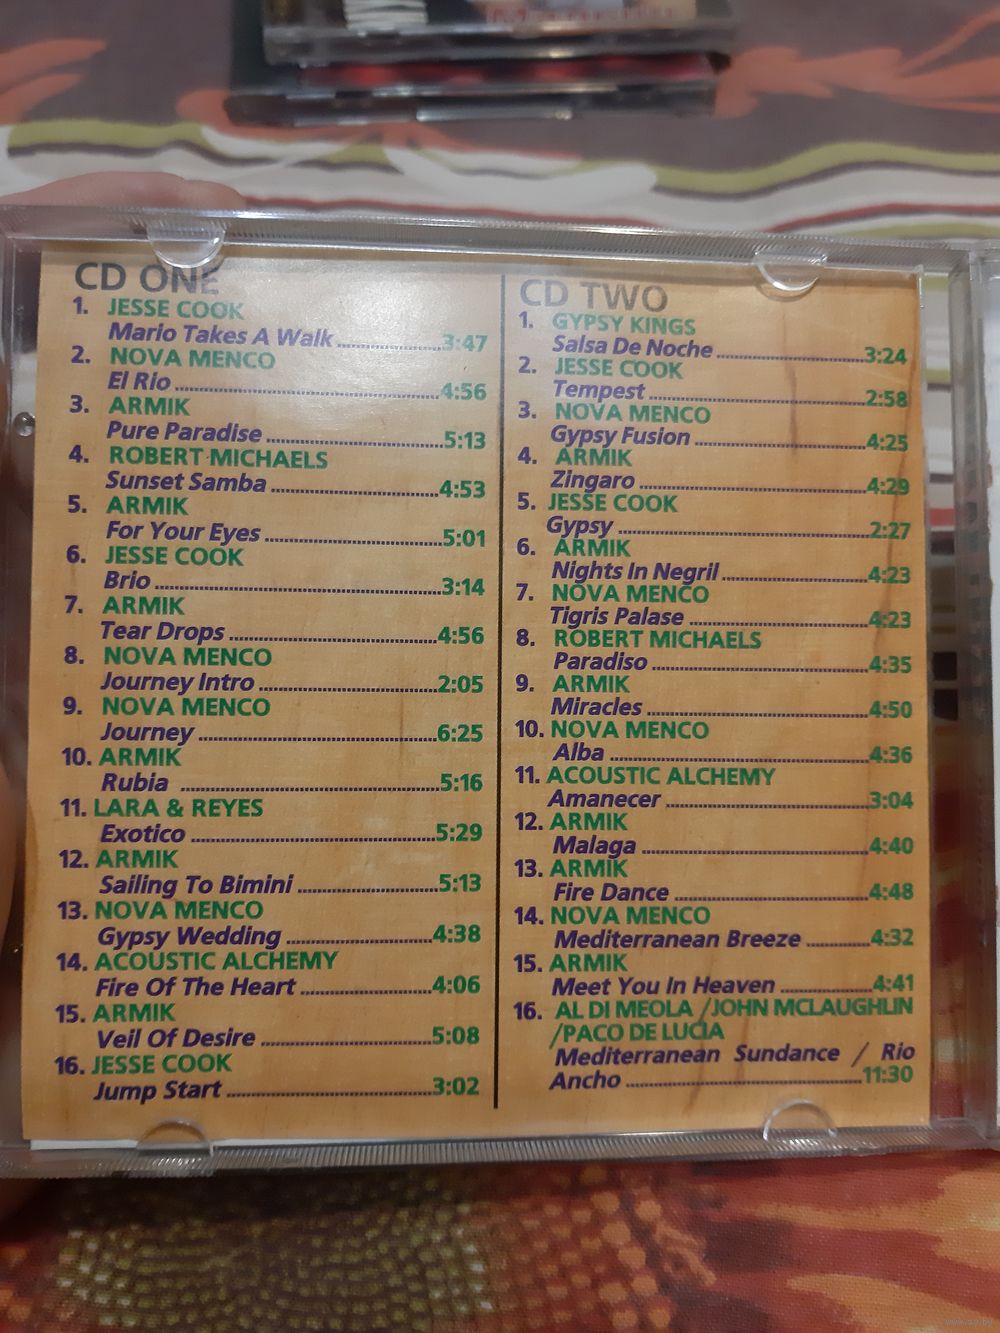 CD ONE
1. JESSE COOK
Mario Takes A Walk ........................3:47
2. NOVA MENCO
El Rio ........................4:56
3. ARMIK
Pure Paradise ........................5:13
4. ROBERT MICHAELS
Sunset Samba ........................4:53
5. ARMIK
For Your Eyes ........................5:01
6. JESSE COOK
Brio ........................3:14
7. ARMIK
Tear Drops ........................4:56
8. NOVA MENCO
Journey Intro ........................2:05
9. NOVA MENCO
Journey ........................6:25
10. ARMIK
Rubia ........................5:16
11. LARA & REYES
Exotico ........................5:29
12. ARMIK
Sailing To Bimini ........................5:13
13. NOVA MENCO
Gypsy Wedding ........................4:38
14. ACOUSTIC ALCHEMY
Fire Of The Heart ........................4:06
15. ARMIK
Veil Of Desire ........................5:08
16. JESSE COOK
Jump Start ........................3:02
CD TWO
1. GYPSY KINGS
Salsa De Noche ........................3:24
2. JESSE COOK
Tempest ........................2:58
3. NOVA MENCO
Gypsy Fusion ........................4:25
4. ARMIK
Zingaro ........................4:29
5. JESSE COOK
Gypsy ........................2:27
6. ARMIK
Nights In Negril ........................4:23
7. NOVA MENCO
Tigris Palase ........................4:23
8. ROBERT MICHAELS
Paradiso ........................4:35
9. ARMIK
Miracles ........................4:50
10. NOVA MENCO
Alba ........................4:36
11. ACOUSTIC ALCHEMY
Amanecer ........................3:04
12. ARMIK
Malaga ........................4:40
13. ARMIK
Fire Dance ........................4:48
14. NOVA MENCO
Mediterranean Breeze ............4:32
15. ARMIK
Meet You In Heaven ............4:41
16. AL DI MEOLA /JOHN MCLAUGHLIN
/PACO DE LUCIA
Mediterranean Sundance / Rio
Ancho ........................11:30